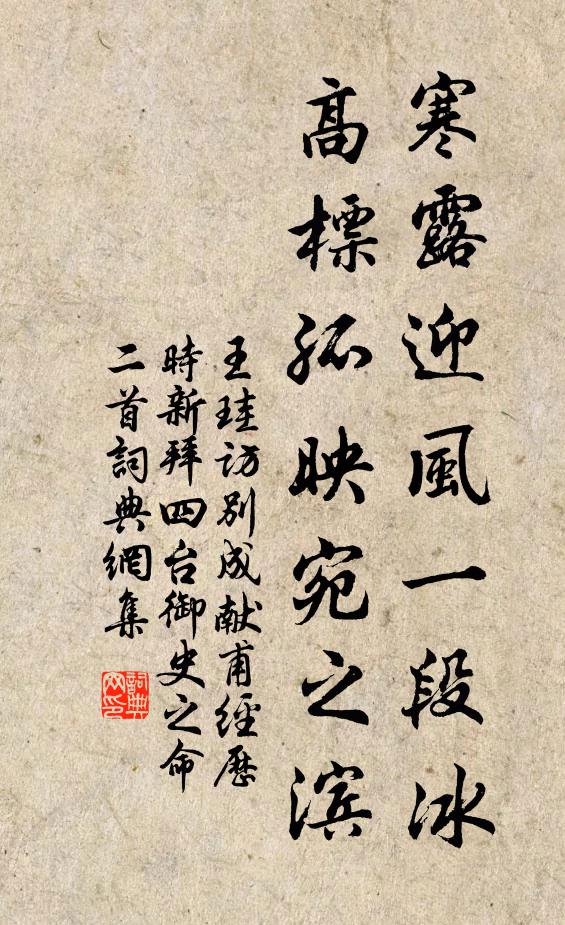 寒露迎風一段冰
高標孤映宛之滨
王珪访别成献甫經歷
時新拜四台御史之命
二首詞典網集
詞典网印